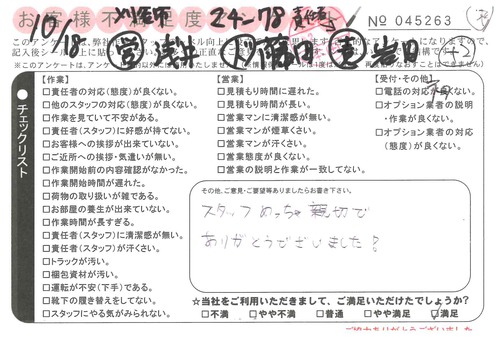 お客様不満足度
24-78
No 045263
10/18
このアンケート
※このアンケート
【作業】
□責任者の対応(態度)が良くない。
□他のスタッフの対応(態度)が良くない。
□作業を見ていて不安がある。
□責任者(スタッフ)に好感が持てない。
□お客様への挨拶が出来ていない。
□ご近所への挨拶・気遣いが無い。
□作業開始前の内容確認がなかった。
□作業開始時間が遅れた。
□荷物の取り扱いが雑である。
□お部屋の養生が出来ていない。
□作業時間が長すぎる。
□責任者(スタッフ)に清潔感が無い。
□責任者(スタッフ)が汗くさい。
□トラックが汚い。
□梱包資材が汚い。
□運転が不安(下手)である。
□靴下の履き替えをしてない。
□スタッフにやる気がみられない。
【営業】
□見積もり時間に遅れた。
□見積もり時間が長い。
□営業マンに清潔感が無い。
□営業マンが煙草くさい。
□営業マンが汗くさい。
□営業態度が良くない。
□営業の説明と作業が一致してない。
【受付・その他】
□電話の対応が良くない。
□オプション業者の説明
・作業が良くない。
□オプション業者の対応
(態度)が良くない。
チェックリスト
その他、ご意見・ご要望等ありましたらお書き下さい。
スタッフめっちゃ親切で
ありがとうございました!
☆当社をご利用いただきまして、ご満足いただけてでしょうか?
□不満 □やや不満 □普通 □やや満足 ☑満足
ご協力ありがとうございました